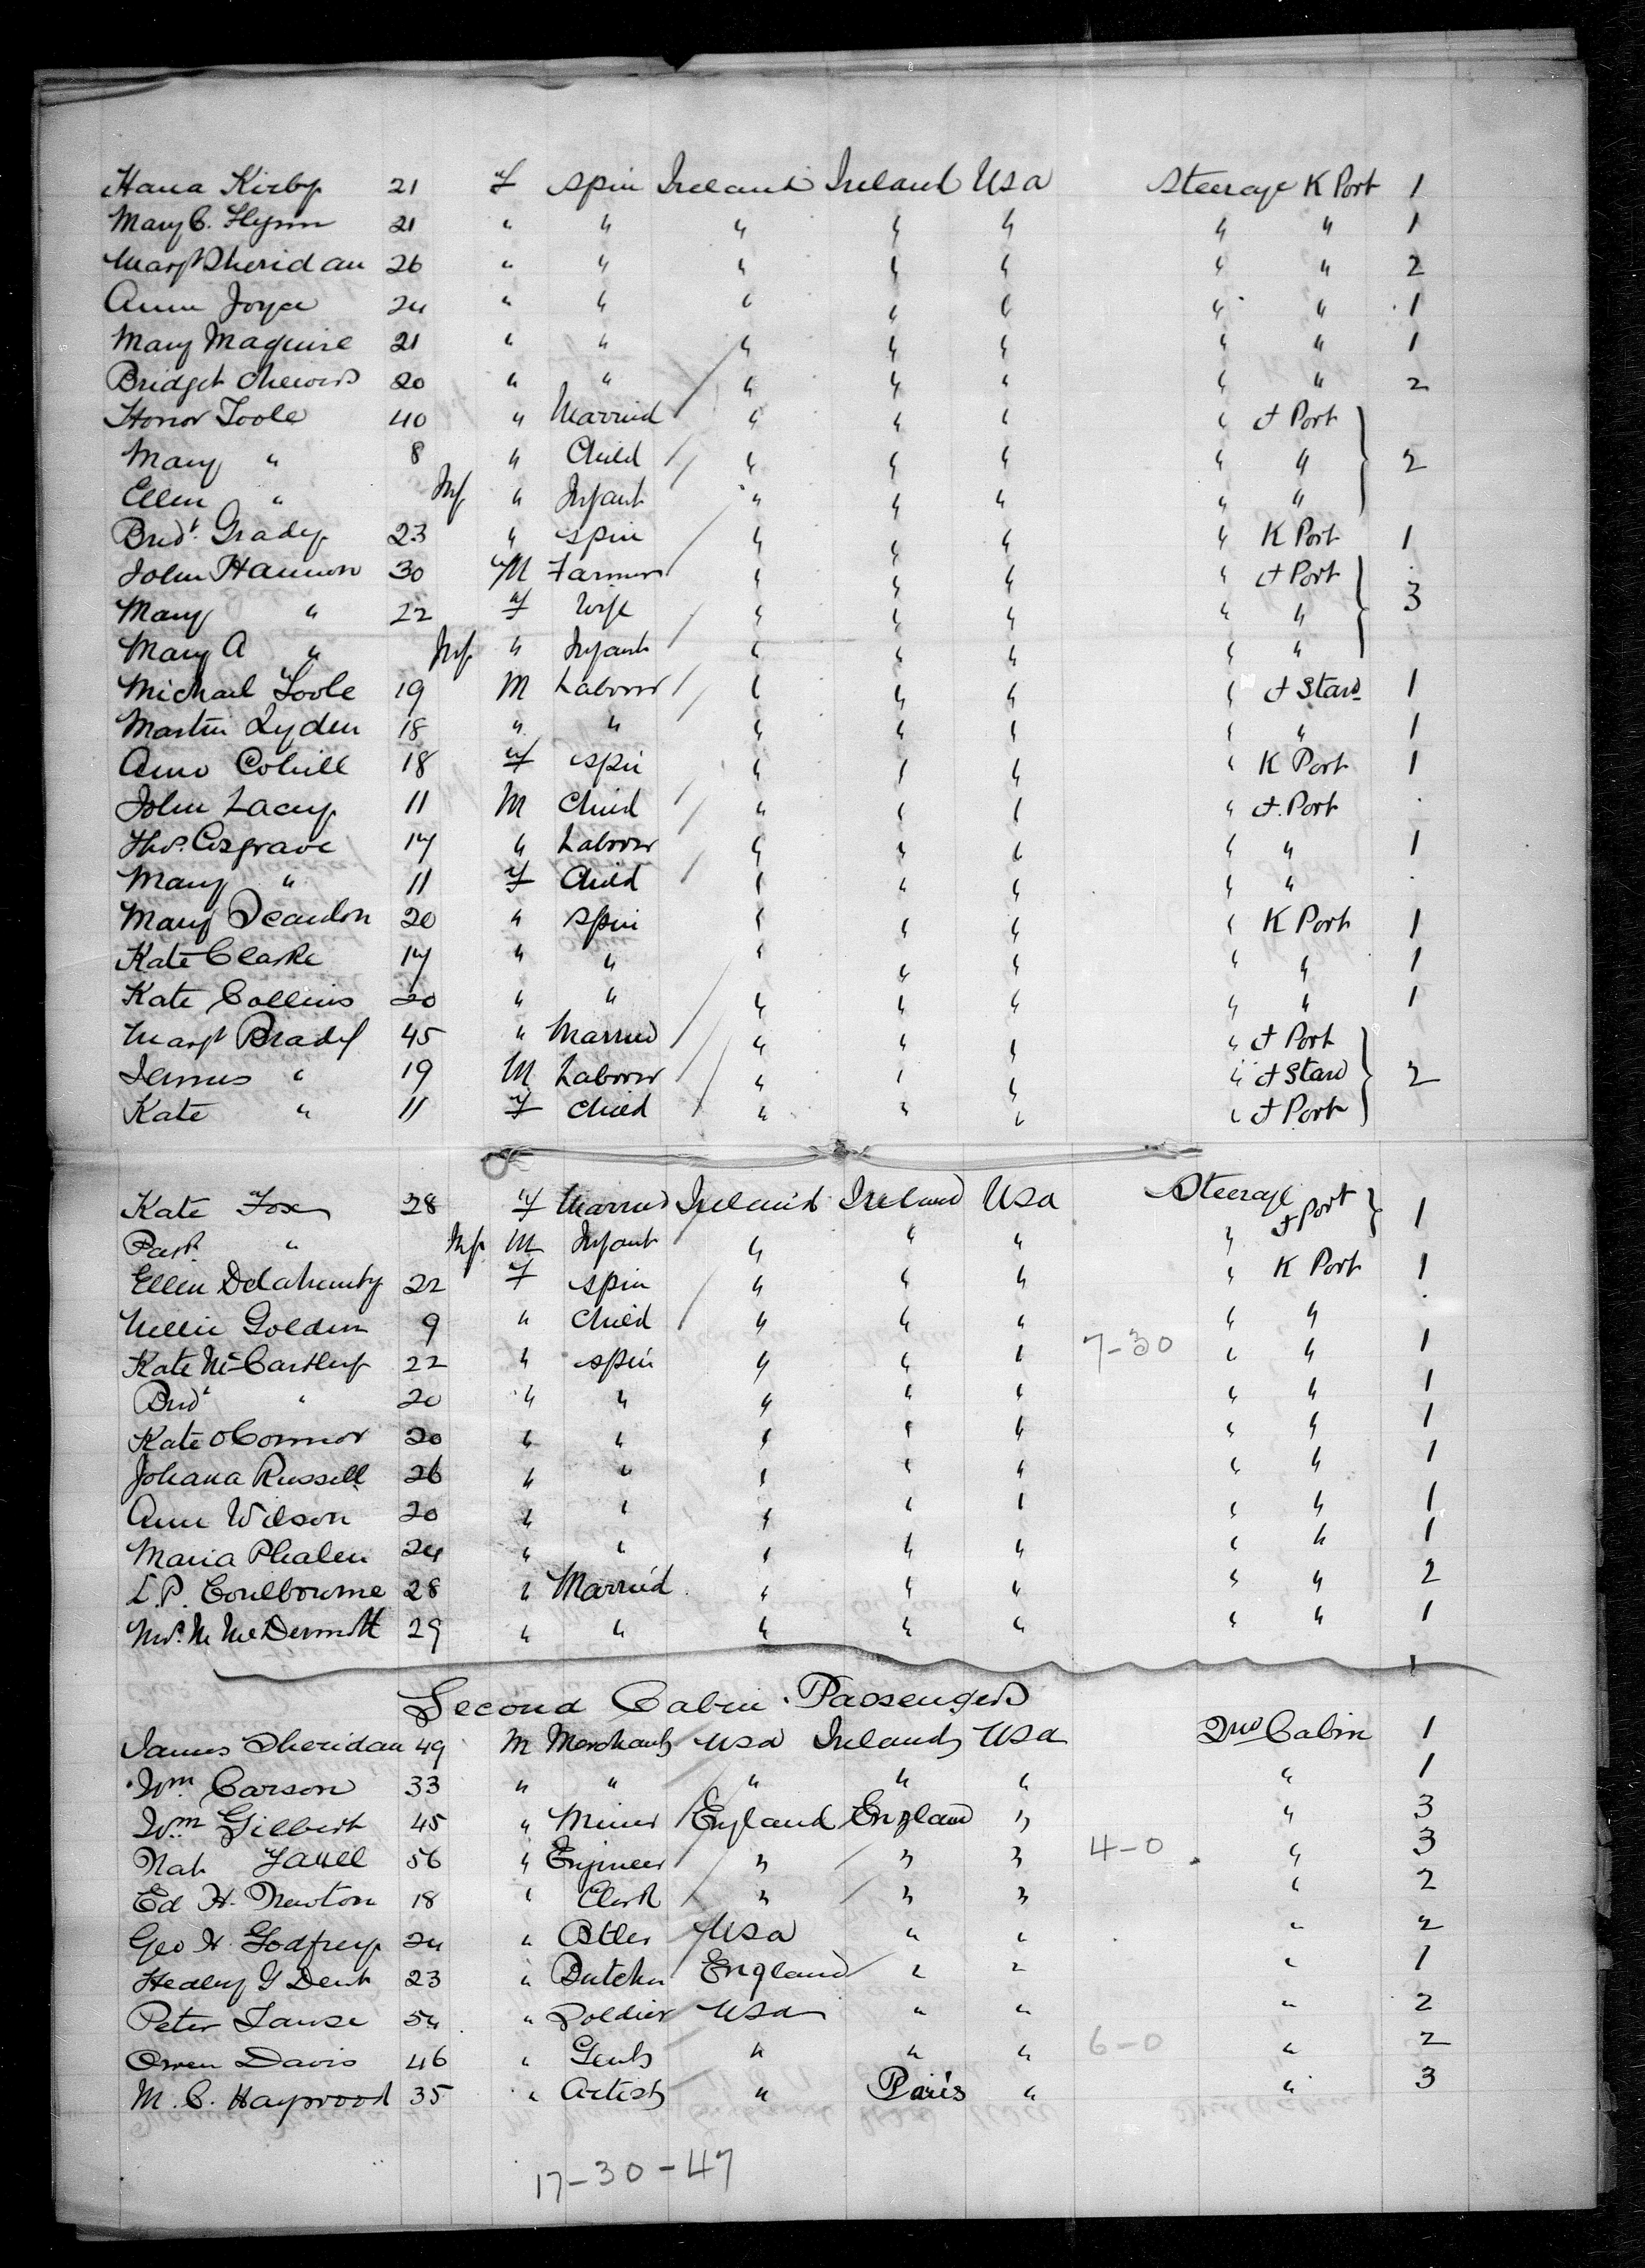 Hana Kirby 21 F Spin Ireland Ireland USA Steerage K Port 1
Mary C. Flynn 21 " " " " " " " 1
Margt Sheridan 26 " " " " " " " 2
Ann Joyce 24 " " " " " " " 1
Mary Maguire 21 " " " " " " " 1
Bridget 20 " " " " " " " 2
Honor Toole 40 " Married " " " " J Port
Mary " 8 " Child " " " " " 2
Ellen " Inf " Infant " " " " "
Brdt Grady 23 " Spin " " " " K Port 1
John Hannon 30 M Farmer " " " " J Port
Mary " 22 F Wife " " " " " 3
Mary A " Inf " Infant " " " " "
Michael Toole 19 M Laborer " " " " J Stard 1
Martin Lyden 18 " " " " " " " 1
Ann Cahill 18 F Spin " " " " K Port 1
John Lacey 11 M Child " " " " J. Port
Thos. Cosgrave 14 " Laborer " " " " " 1
Mary " 11 F Child " " " " "
Mary Scanlon 20 " Spin " " " " K Port 1
Kate Clarke 14 " " " " " " " 1
Kate Collins 20 " " " " " " " 1
Margt Brady 45 " Married " " " " J Port
James " 19 M Laborer " " " " J Stard 2
Kate " 11 F Child " " " " J Port
Kate Fox 28 F Married Ireland Ireland USA Steerage J Port 1
Patk " Inf M Infant " " " "
Ellen Delahunty 22 F Spin " " " " K Port 1
Nellie Golden 9 " Child " " " " "
Kate McCarthy 22 " Spin " " " 7-30 " " 1
Brdt " 20 " " " " " " " 1
Kate O'Connor 20 " " " " " " " 1
Johana Russell 26 " " " " " " " 1
Ann Wilson 20 " " " " " " " 1
Maria Phalen 24 " " " " " " " 1
L. P. Coulbourne 28 " Married " " " " " 2
Mrs. M McDermott 29 " " " " " " " 1
1
Second Cabin Passengers
James Sheridan 49 M Merchant USA Ireland USA 2nd Cabin 1
Wm. Carson 33 " " " " " " 1
Wm Gilbert 45 " Miner England England " " 3
Nat 56 " Engineer " " " 4-0 " 3
Ed H. Newton 18 " Clerk " " " " 2
Geo H. Godfrey 24 " USA " " " 2
Hedley G Dent 23 " Butcher England " " " 1
Peter 54 " Soldier USA " " " 2
Owen Davis 46 " Gent " " " 6-0 " 2
M. C. Haywood 35 " Artist " Paris " " 3
17-30-47